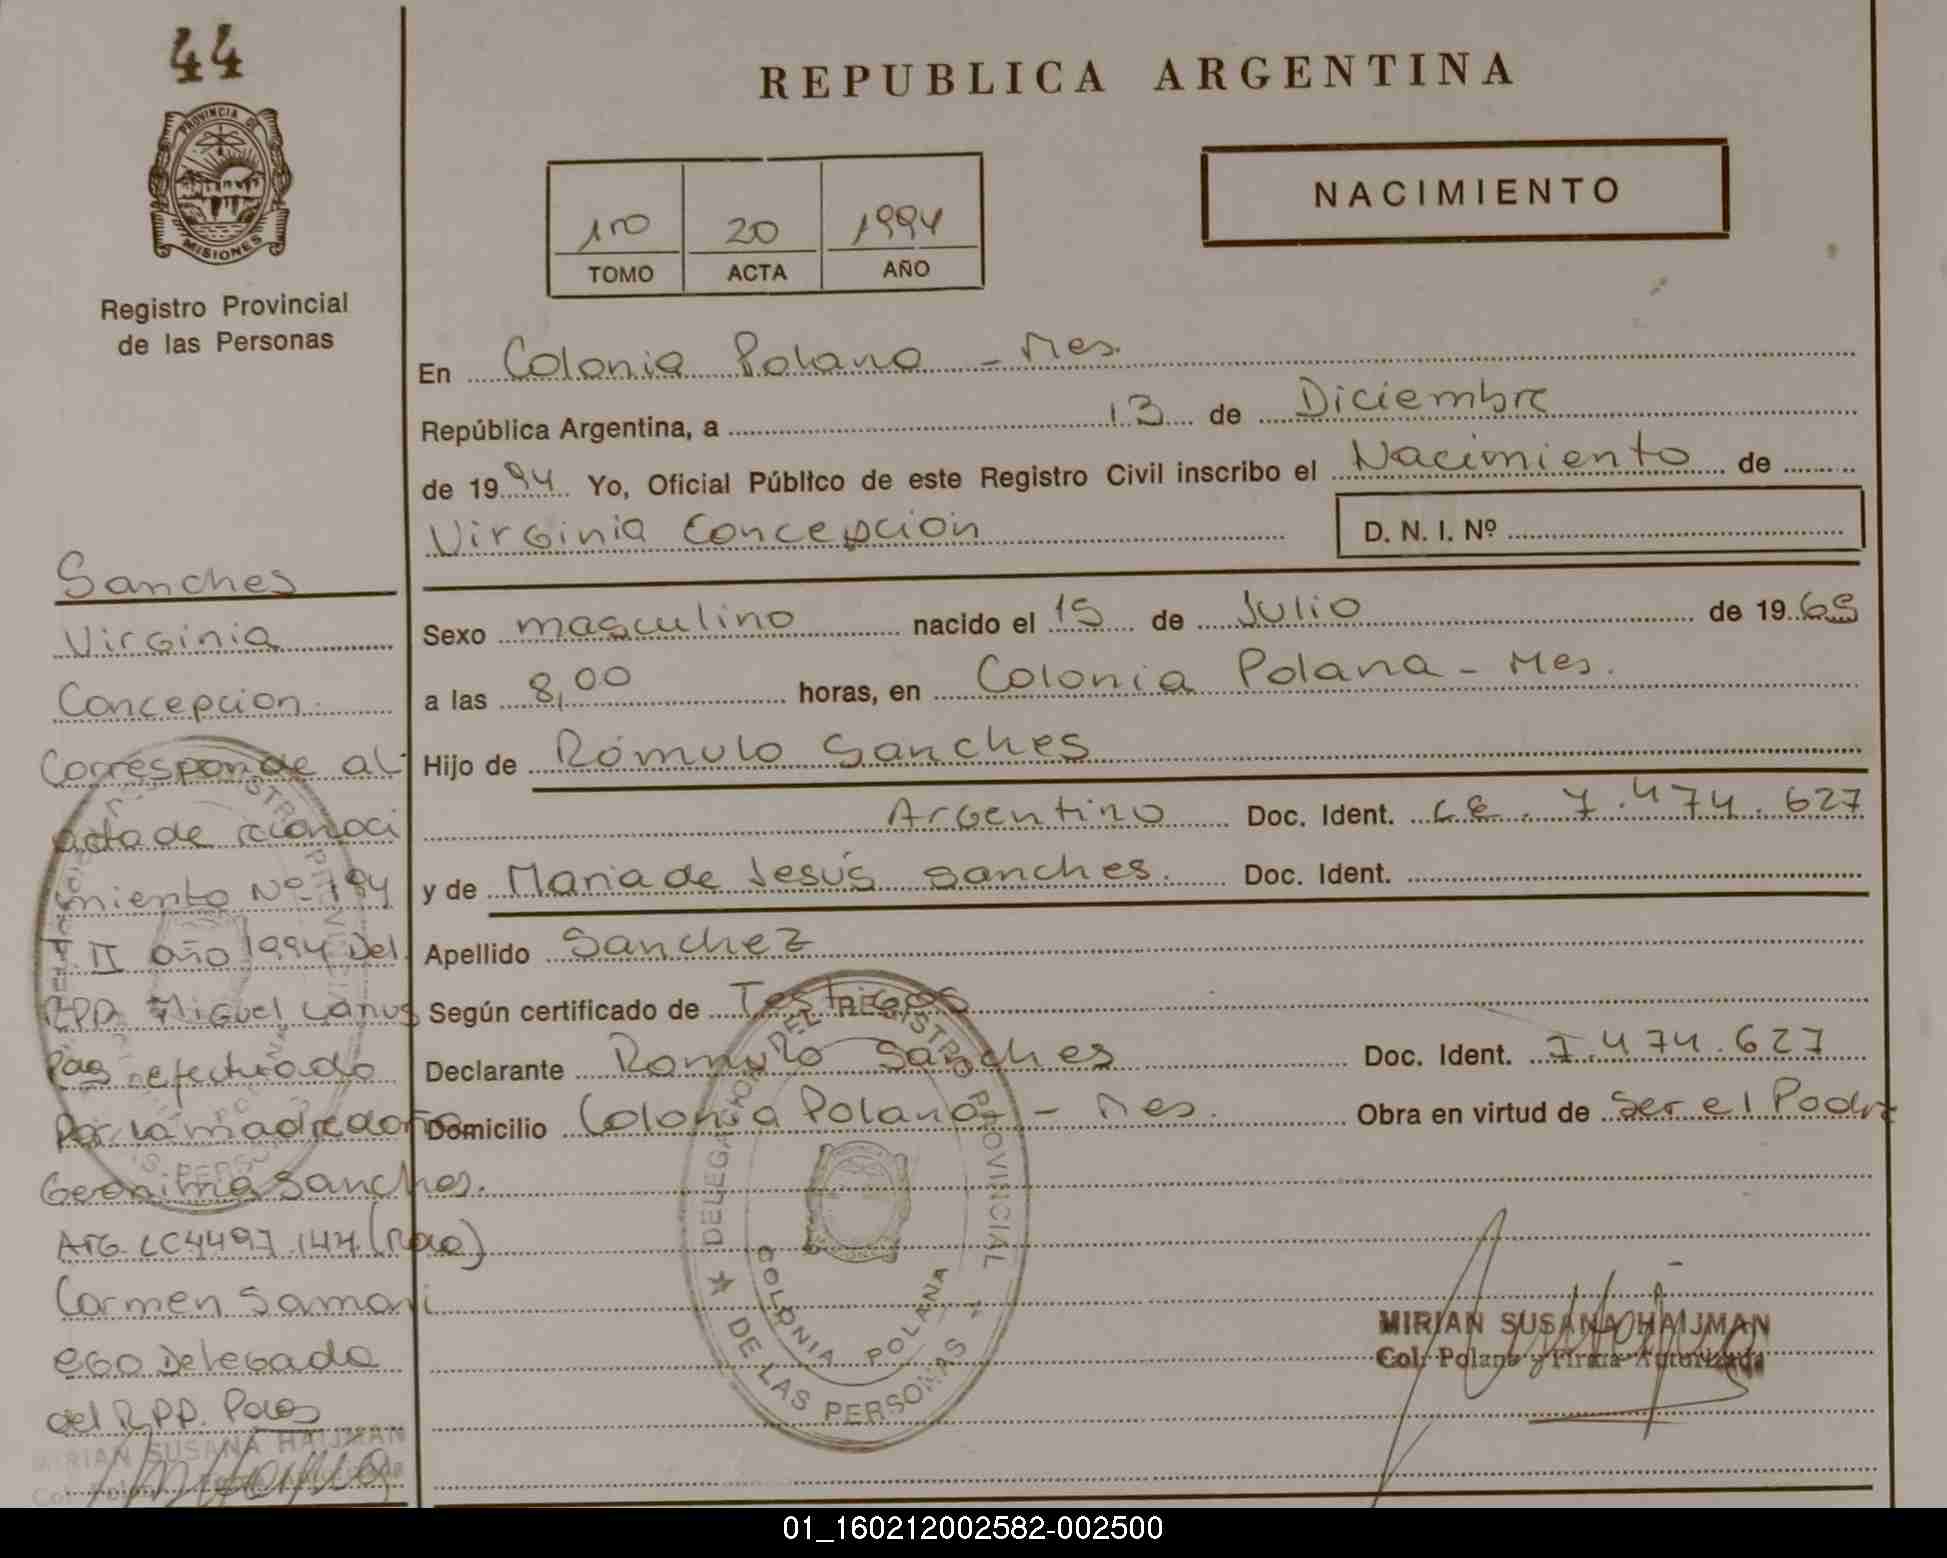 44
PROVINCIA DE
MISIONES
Registro Provincial
de las Personas
REPUBLICA ARGENTINA
1ro 20 1994
TOMO ACTA AÑO
NACIMIENTO
En Colonia Polana - Mes.
República Argentina, a 13 de Diciembre
de 1994 Yo, Oficial Público de este Registro Civil inscribo el Nacimiento de
Virginia Concepcion D. N. I. Nº
Sexo masculino nacido el 15 de Julio de 1969
a las 8,00 horas, en Colonia Polana - Mes.
Hijo de Rómulo Sanches
Argentino Doc. Ident. L.E. 7.474.627
y de Maria de Jesús Sanches. Doc. Ident.
Apellido Sanchez
Según certificado de Testigos
Declarante Romulo Sanches Doc. Ident. 7.474.627
Domicilio Colonia Polana - Mes. Obra en virtud de Ser el Padre
Sanches
Virginia
Concepcion
Corresponde al
acta de reconoci
miento Nº 194
T. II año 1994 Del.
RPP Miguel Lanus
Pas efectuado
Por la madre doña
Geronima Sanches.
Arg. LC 4497.144
Carmen Samani
ego Delegada
del R.P.P. Pdas
MIRIAN SUSANA HAIJMAN
DELEGACION DEL REGISTRO PROVINCIAL
DE LAS PERSONAS
COLONIA POLANA
MIRIAN SUSANA HAIJMAN
Col. Polana y Firma Autorizada
01_160212002582-002500